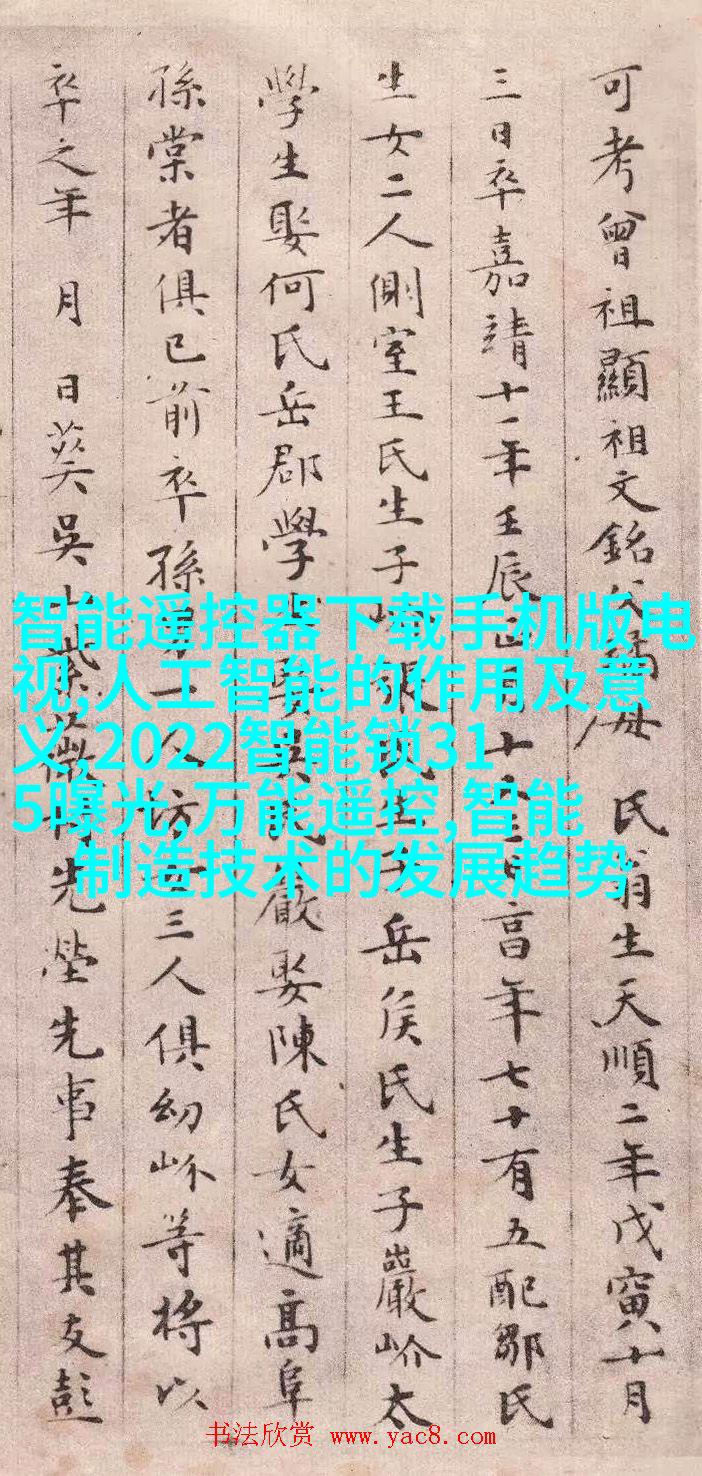 可考曾祖顯祖文銘父 母 氏翁生天順二年戊寅十月
三日卒嘉靖十一年壬辰 月十 日 高年七十有五配鄒氏
生女二人側室王氏生子 張氏生子岳侯氏生子巖岕太
學生娶何氏岳郡學 娶吳氏巖娶陳氏女適高阜
孫棠者俱已前卒孫男一人坊 三人俱幼岕等將以
卒之年 月 日葬吳山紫薇 先塋先事奉其友彭
智能遥控器下载手机版电
视,人工智能的作用及意
义,2022智能锁31
5曝光,万能遥控,智能
制造技术的发展趋势
书法欣赏 www.yac8.com